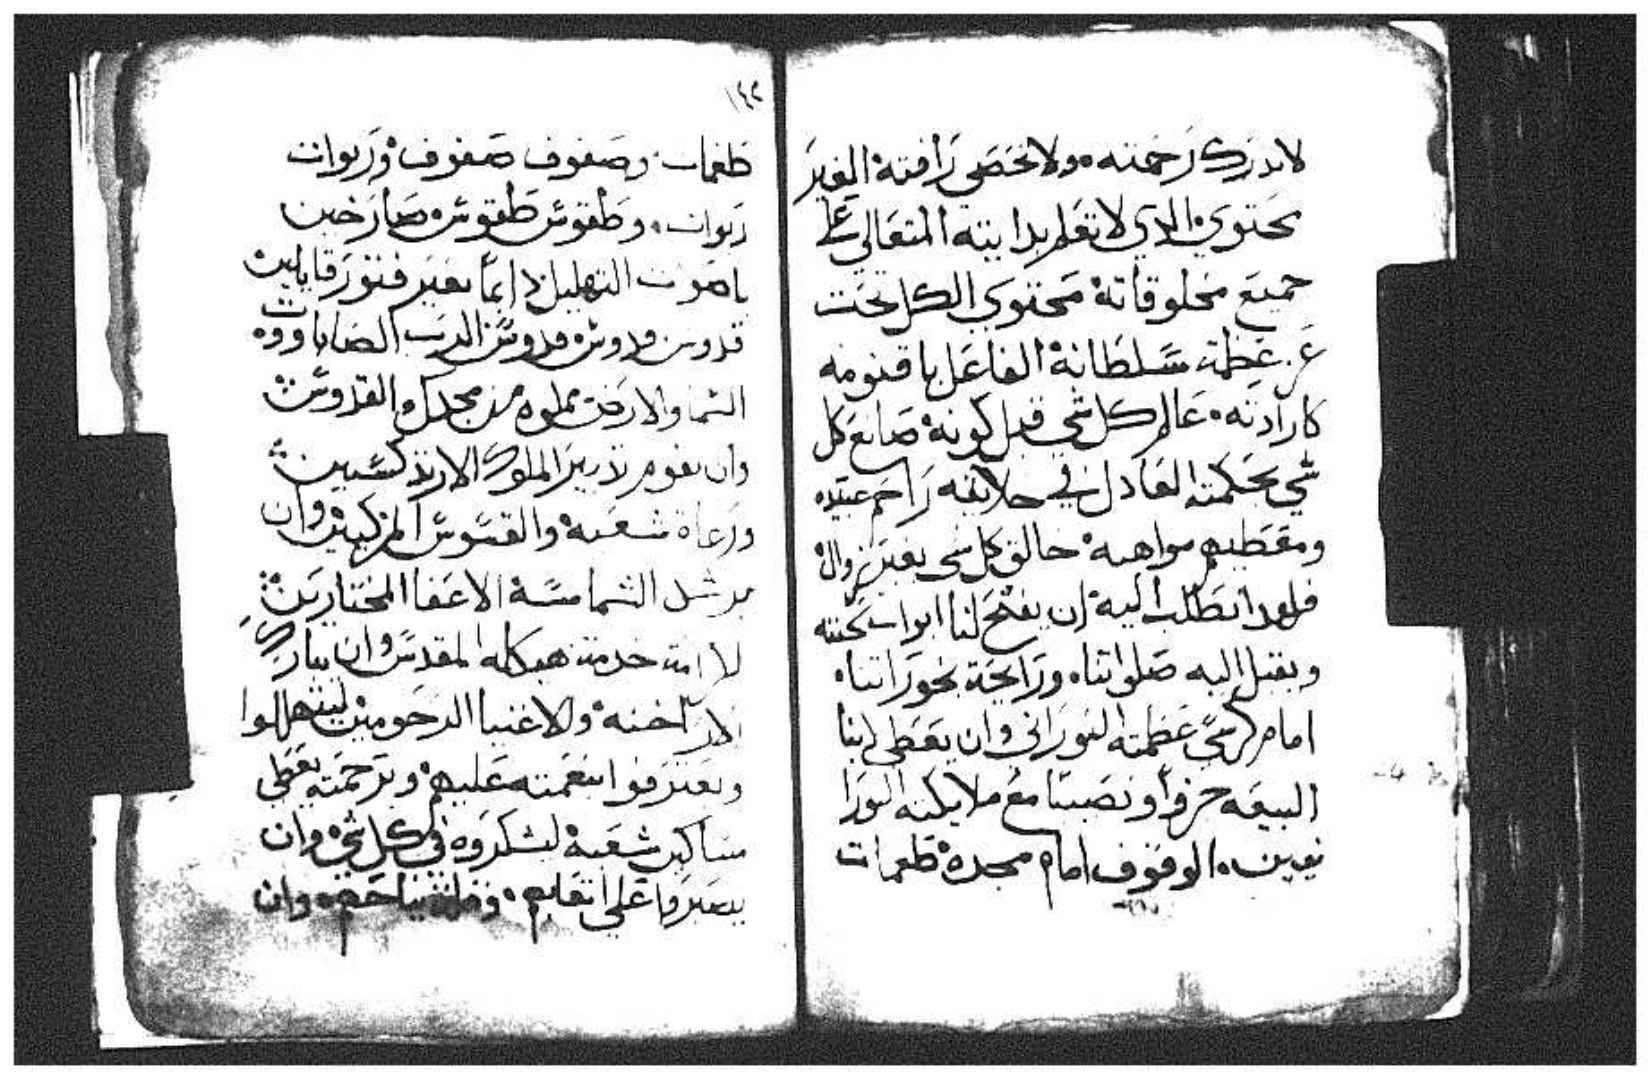 لا تدرك رحمته ولا تحصى رافته الغير
محتوي الذي لا تعلم بدايته المتعالي على
جميع مخلوقاتة محتوي الكل تحت
عز عظمة سلطانة الفاعل باقنومه
كارادته عالم كل شي قبل كونة صانع كل
شي بحكمته العادل في خلايقه راحم عبيده
ومعطيهم مواهبة خالق كل شي بغير زوال
فلهدا نطلب الية ان يفتح لنا ابواب
ويقبل اليه صلواتنا ورايحة بخوراتنا
امام كرسي عظمته النوراني وان يعطي لابنا
البيعه حزوا ونصيبا مع ملايكته النورا
نيين الوقوف امام مجدة طغمات
١٤٢
طغمات وصفوف صفوف وربوات
ربوات وطقوس طقوس صارخين
باصوت التهليل دايما بغير فتور قايلين
قدوس قدوس قدوس الرب الصاباووت
السما والارض مملوه من مجدك القدوس
وان يقوم تدبير الملوك الارتدكسيين
ورعاة شعبة والقسوس المزكيين وان
يرشد الشمامسة الاعفا المختارين
لاامة خدمة هيكله المقدس وان يبارك
الاراخنة والاغنيا الرحومين ليتهللوا
ويعترفوا بنعمته عليهم وبرحمته يعطي
مساكين شعبة ليشكروه في كل شي وان
يصبروا على اتعابهم وان